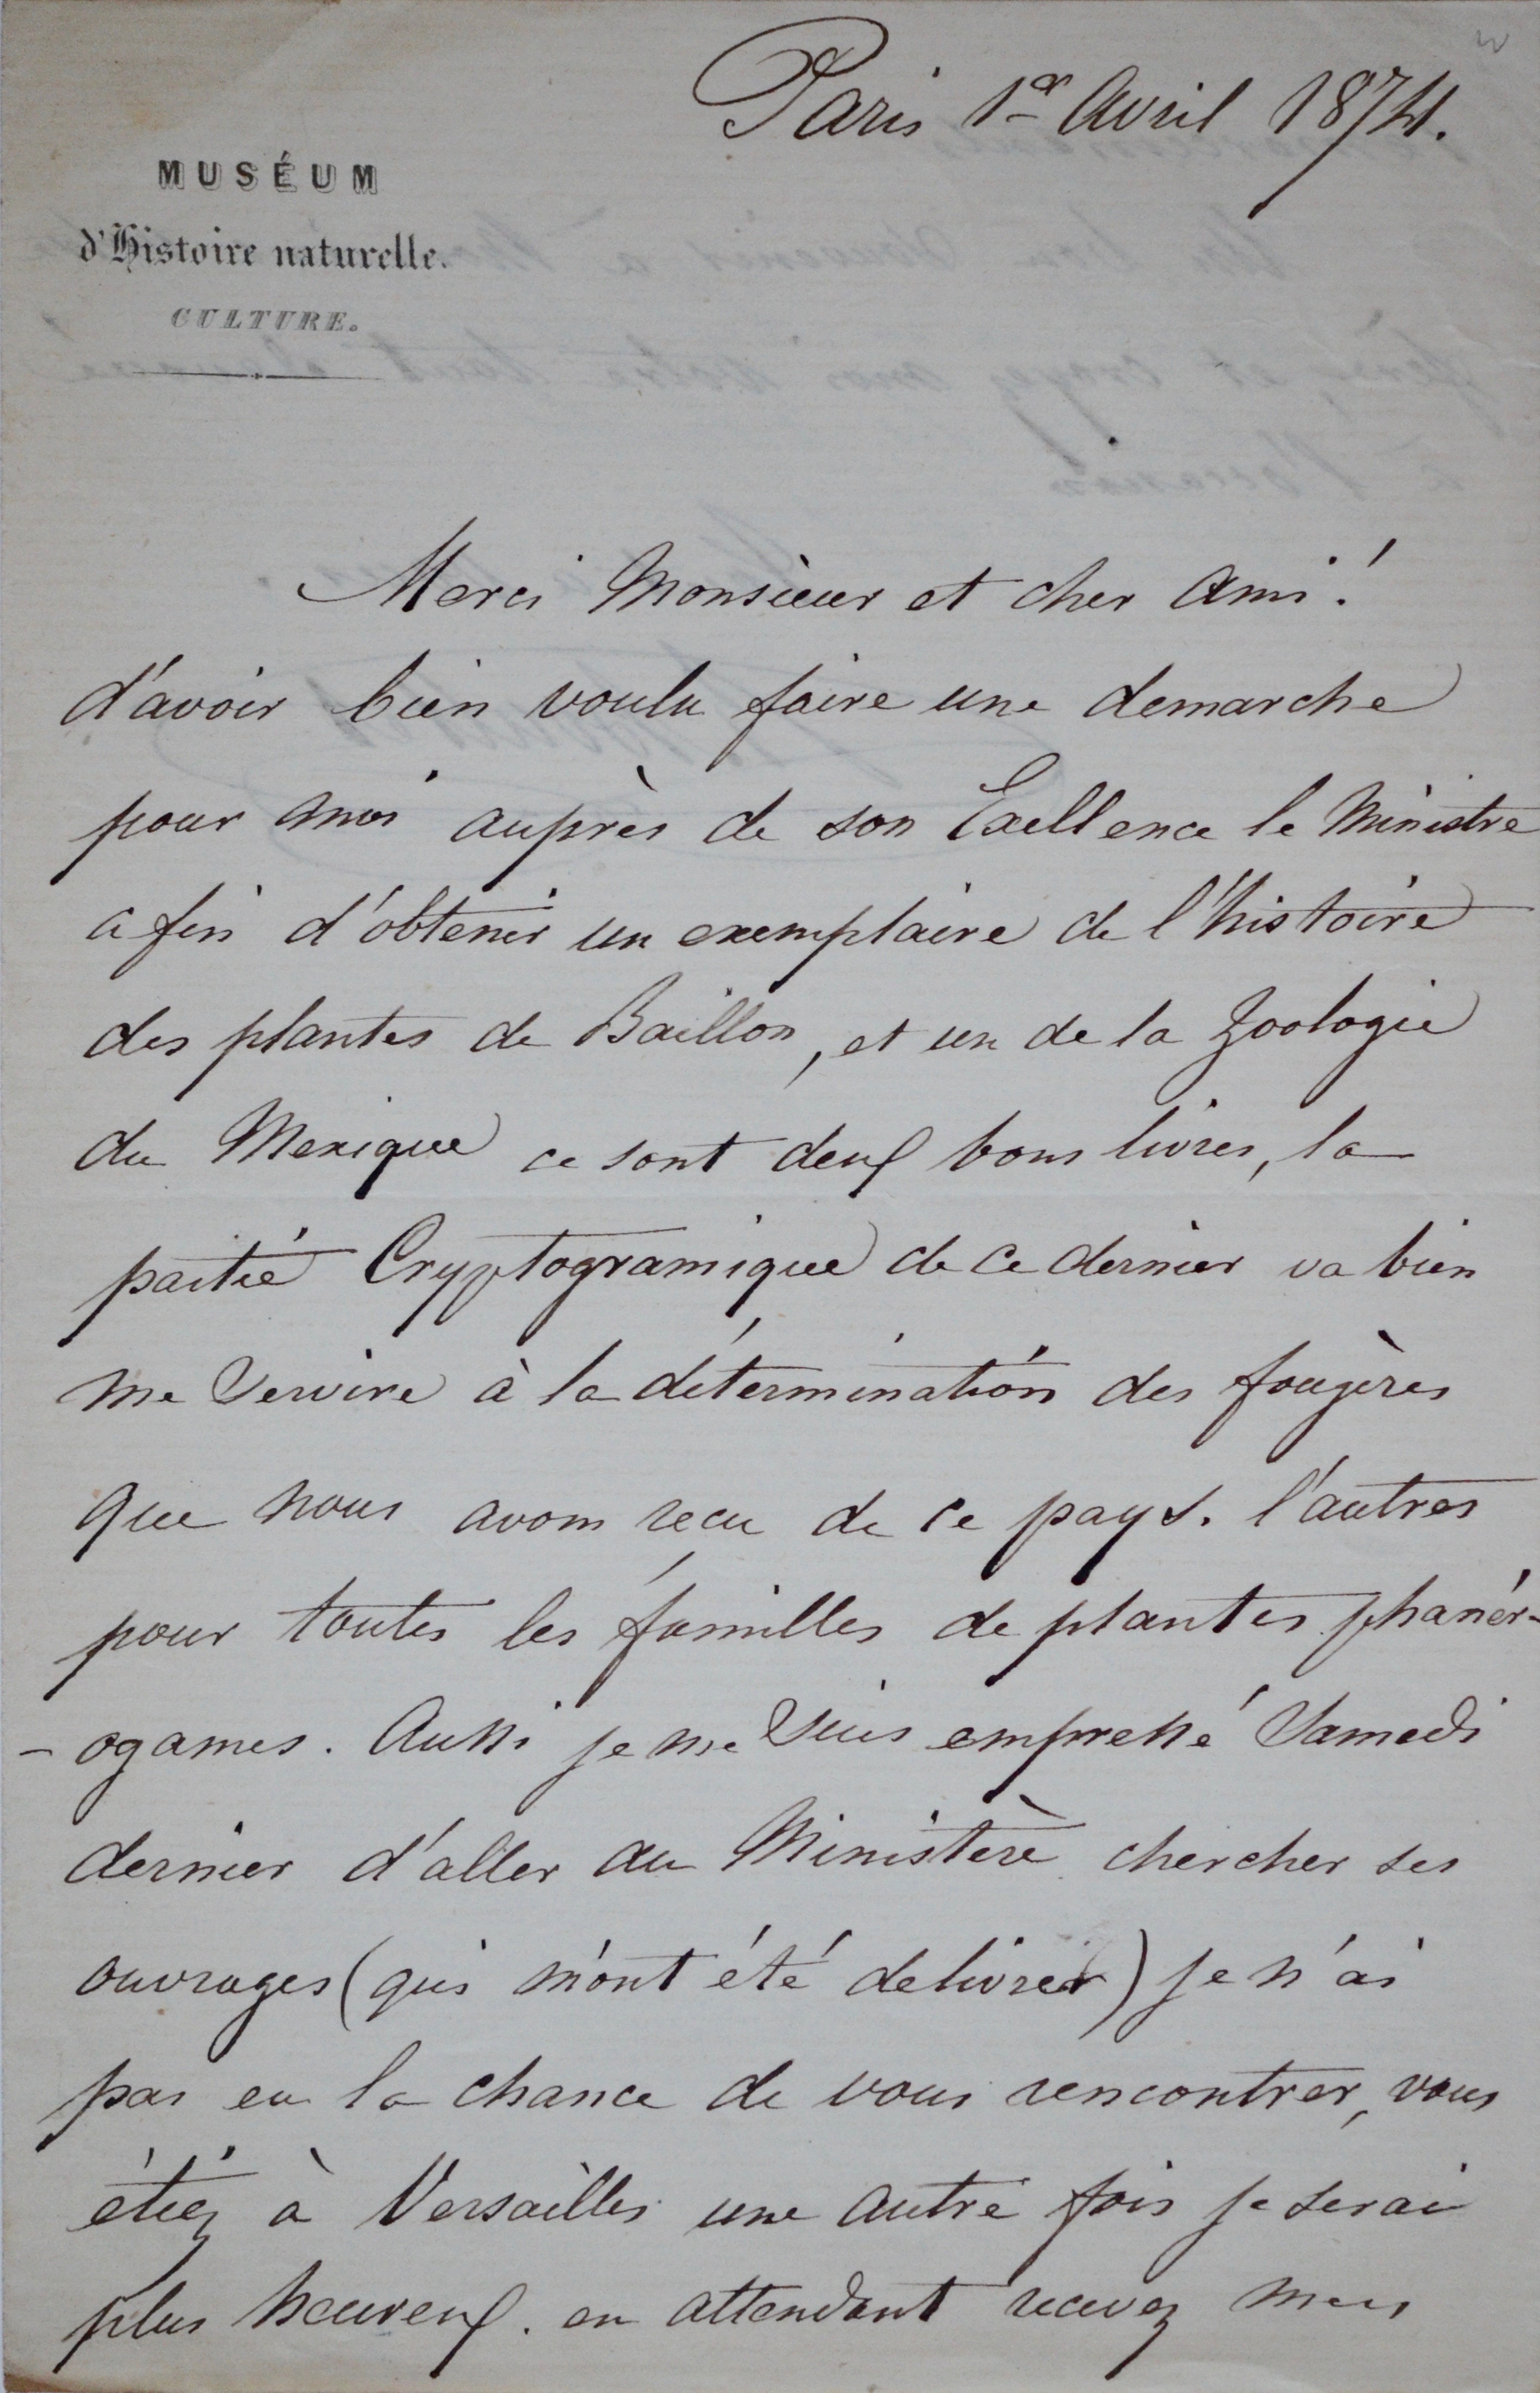 Paris 1er Avril 1874.
MUSÉUM
d'Histoire naturelle.
CULTURE.
Merci Monsieur et cher Ami!
d'avoir bien voulu faire une demarche
pour moi auprès de son Exellence le Ministre
afin d'obtenir un exemplaire de l'histoire
des plantes de Baillon, et un de la Zoologie
du Mexique ce sont deux bons livres, la
partie Cryptogramique de ce dernier va bien
me servire à la détermination des fougères
que nous avons recu de ce pays. l'autres
pour toutes les familles de plantes phanér-
-ogames. Aussi je me suis empressé Samedi
dernier d'aller au Ministère chercher ses
ouvrages (qui m'ont été delivrer) je n'ai
pas eu la chance de vous rencontrer, vous
étiez à Versailles une autre fois je serai
plus heureux. en attendant recevez mes